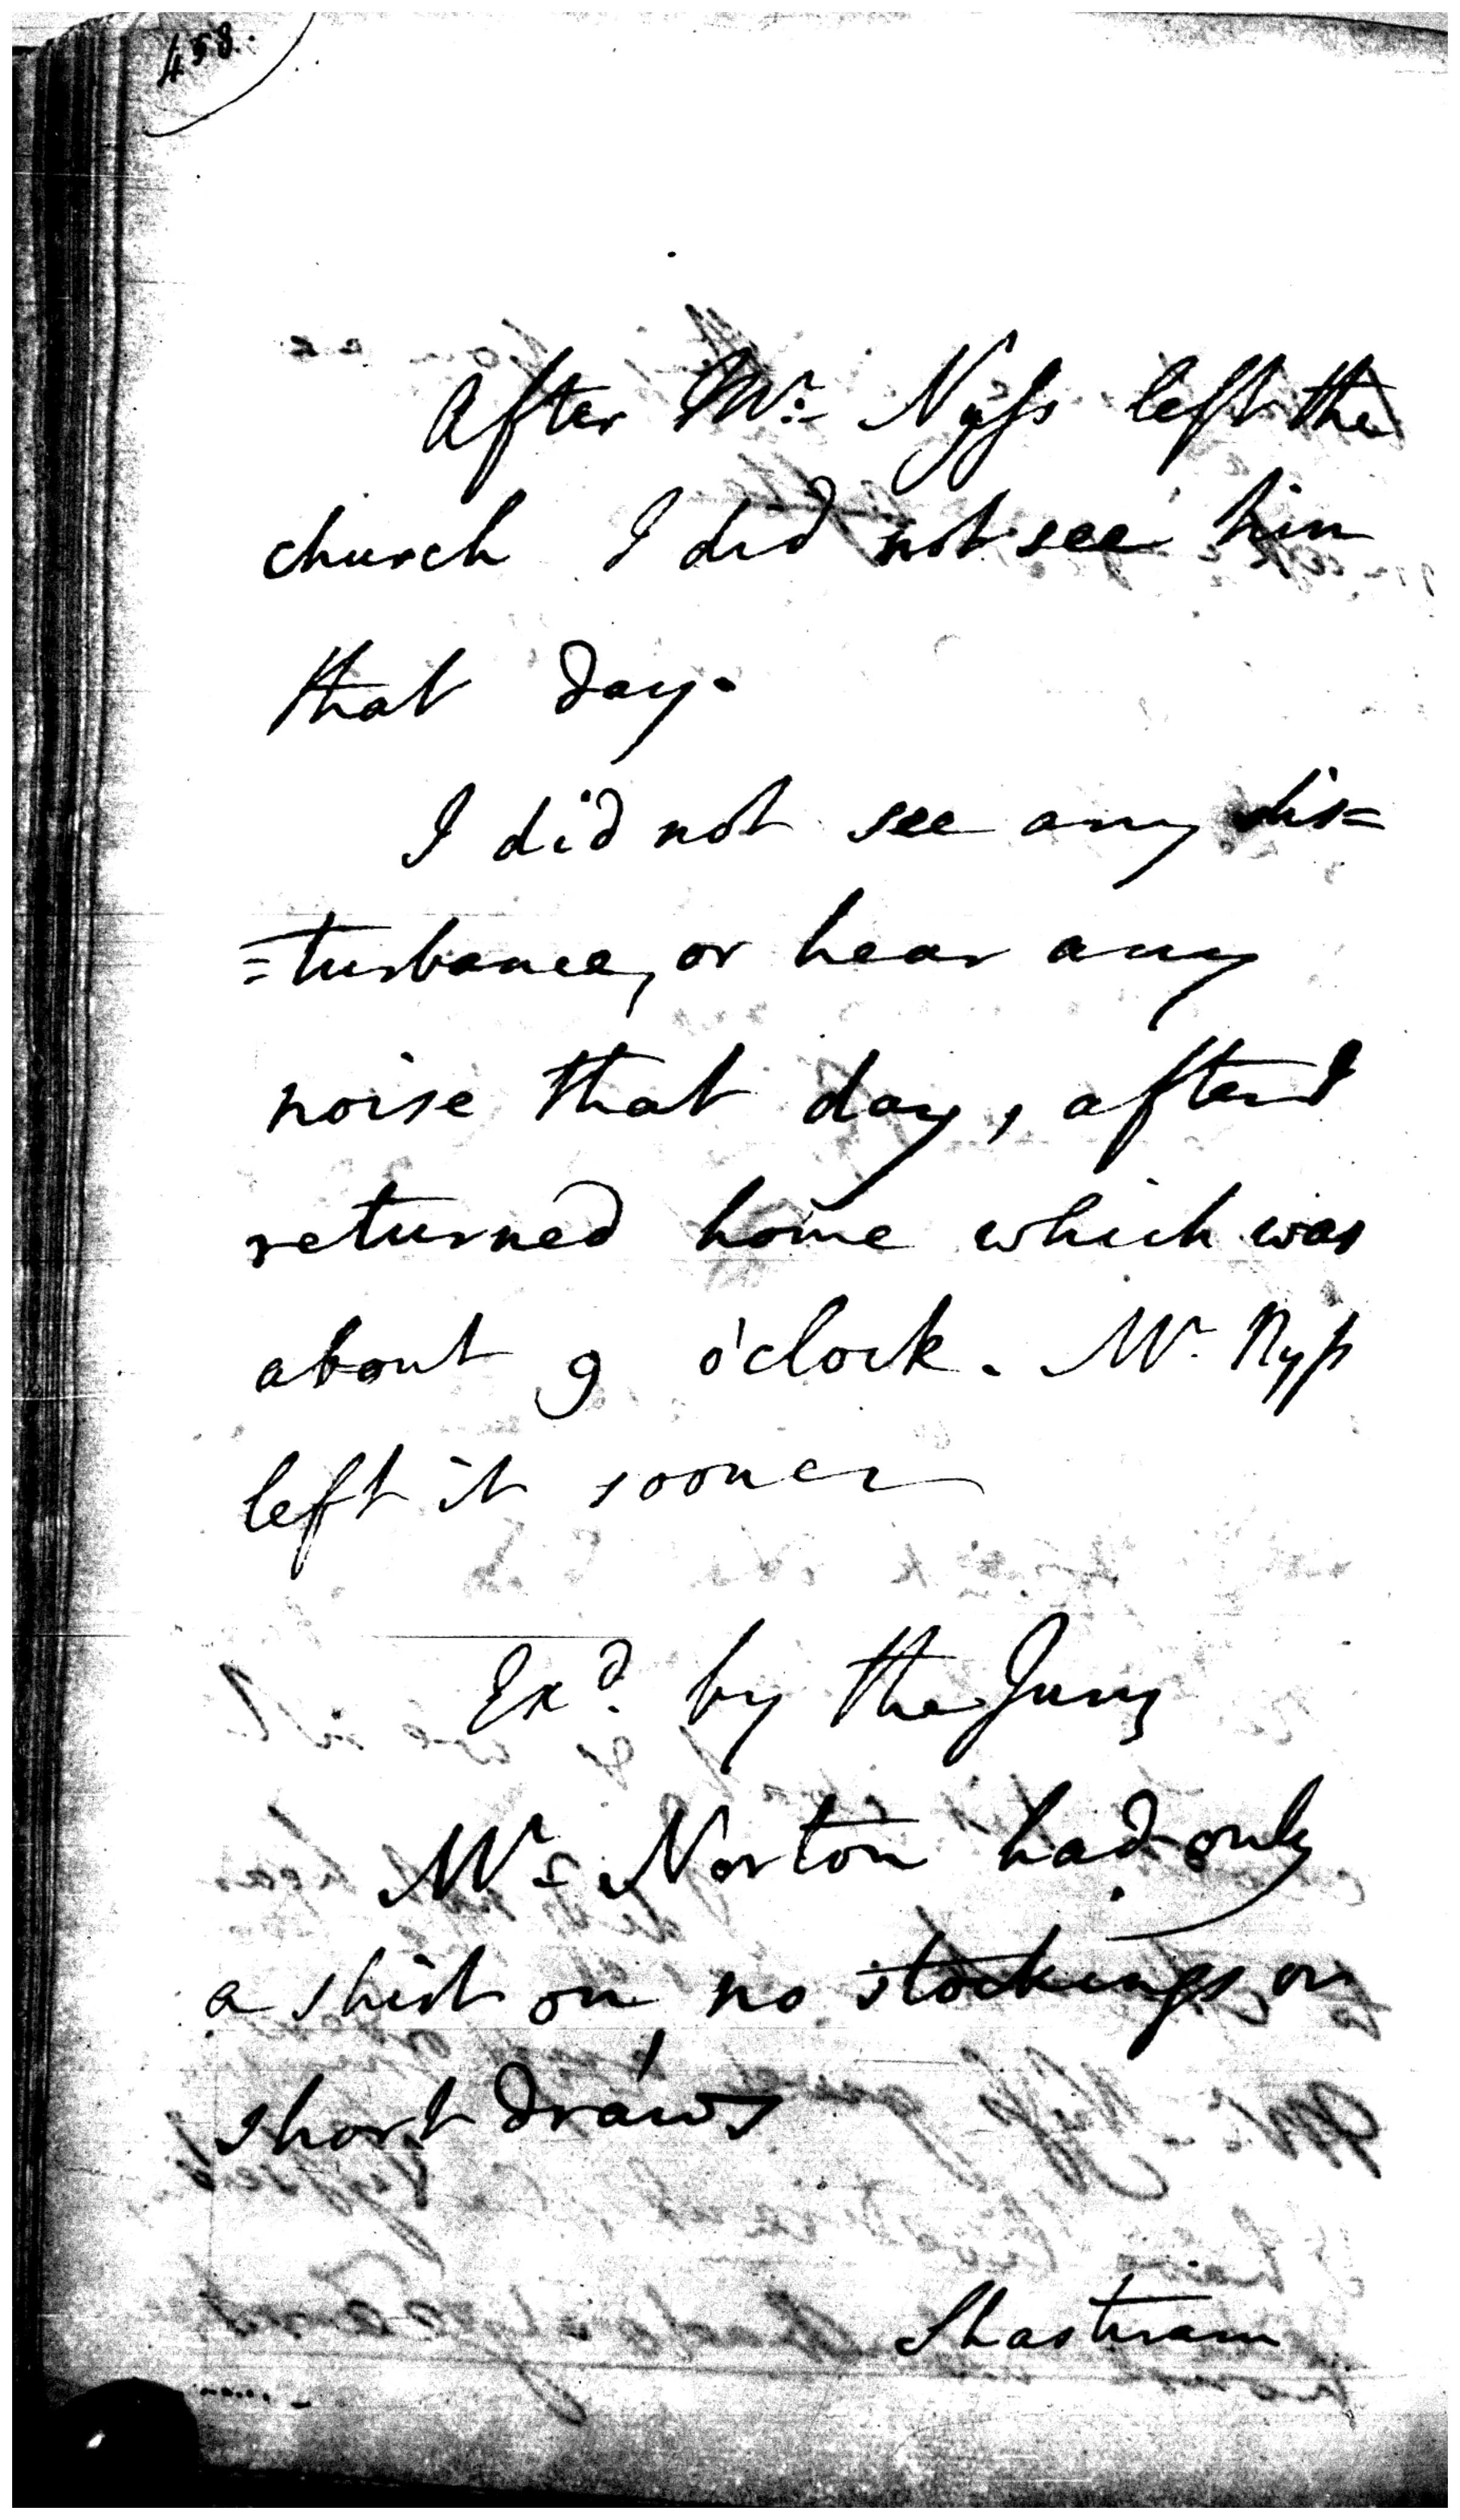 458.
After Mr. Nyss left the
church I did not see him
that day.
I did not see any dis=
=turbance, or hear any
noise that day, after I
returned home which was
about 9 o'clock. Mr Nyss
left it sooner
Exd. by the Jury
Mr Norton had only
a shirt on, no stockings on
short draws
Shasturam